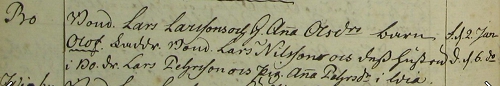 Bro Bond. Lars Larssons och H. Ana Olsdrs barn f. d. 2. Jan
Olof. Faddr. Bond. Lars Nilsson ocs desß hustru d. d. 6. do
i Bo. dr. Lars Pehrsson ocs pig. Aña Pehrsdr i Wia.